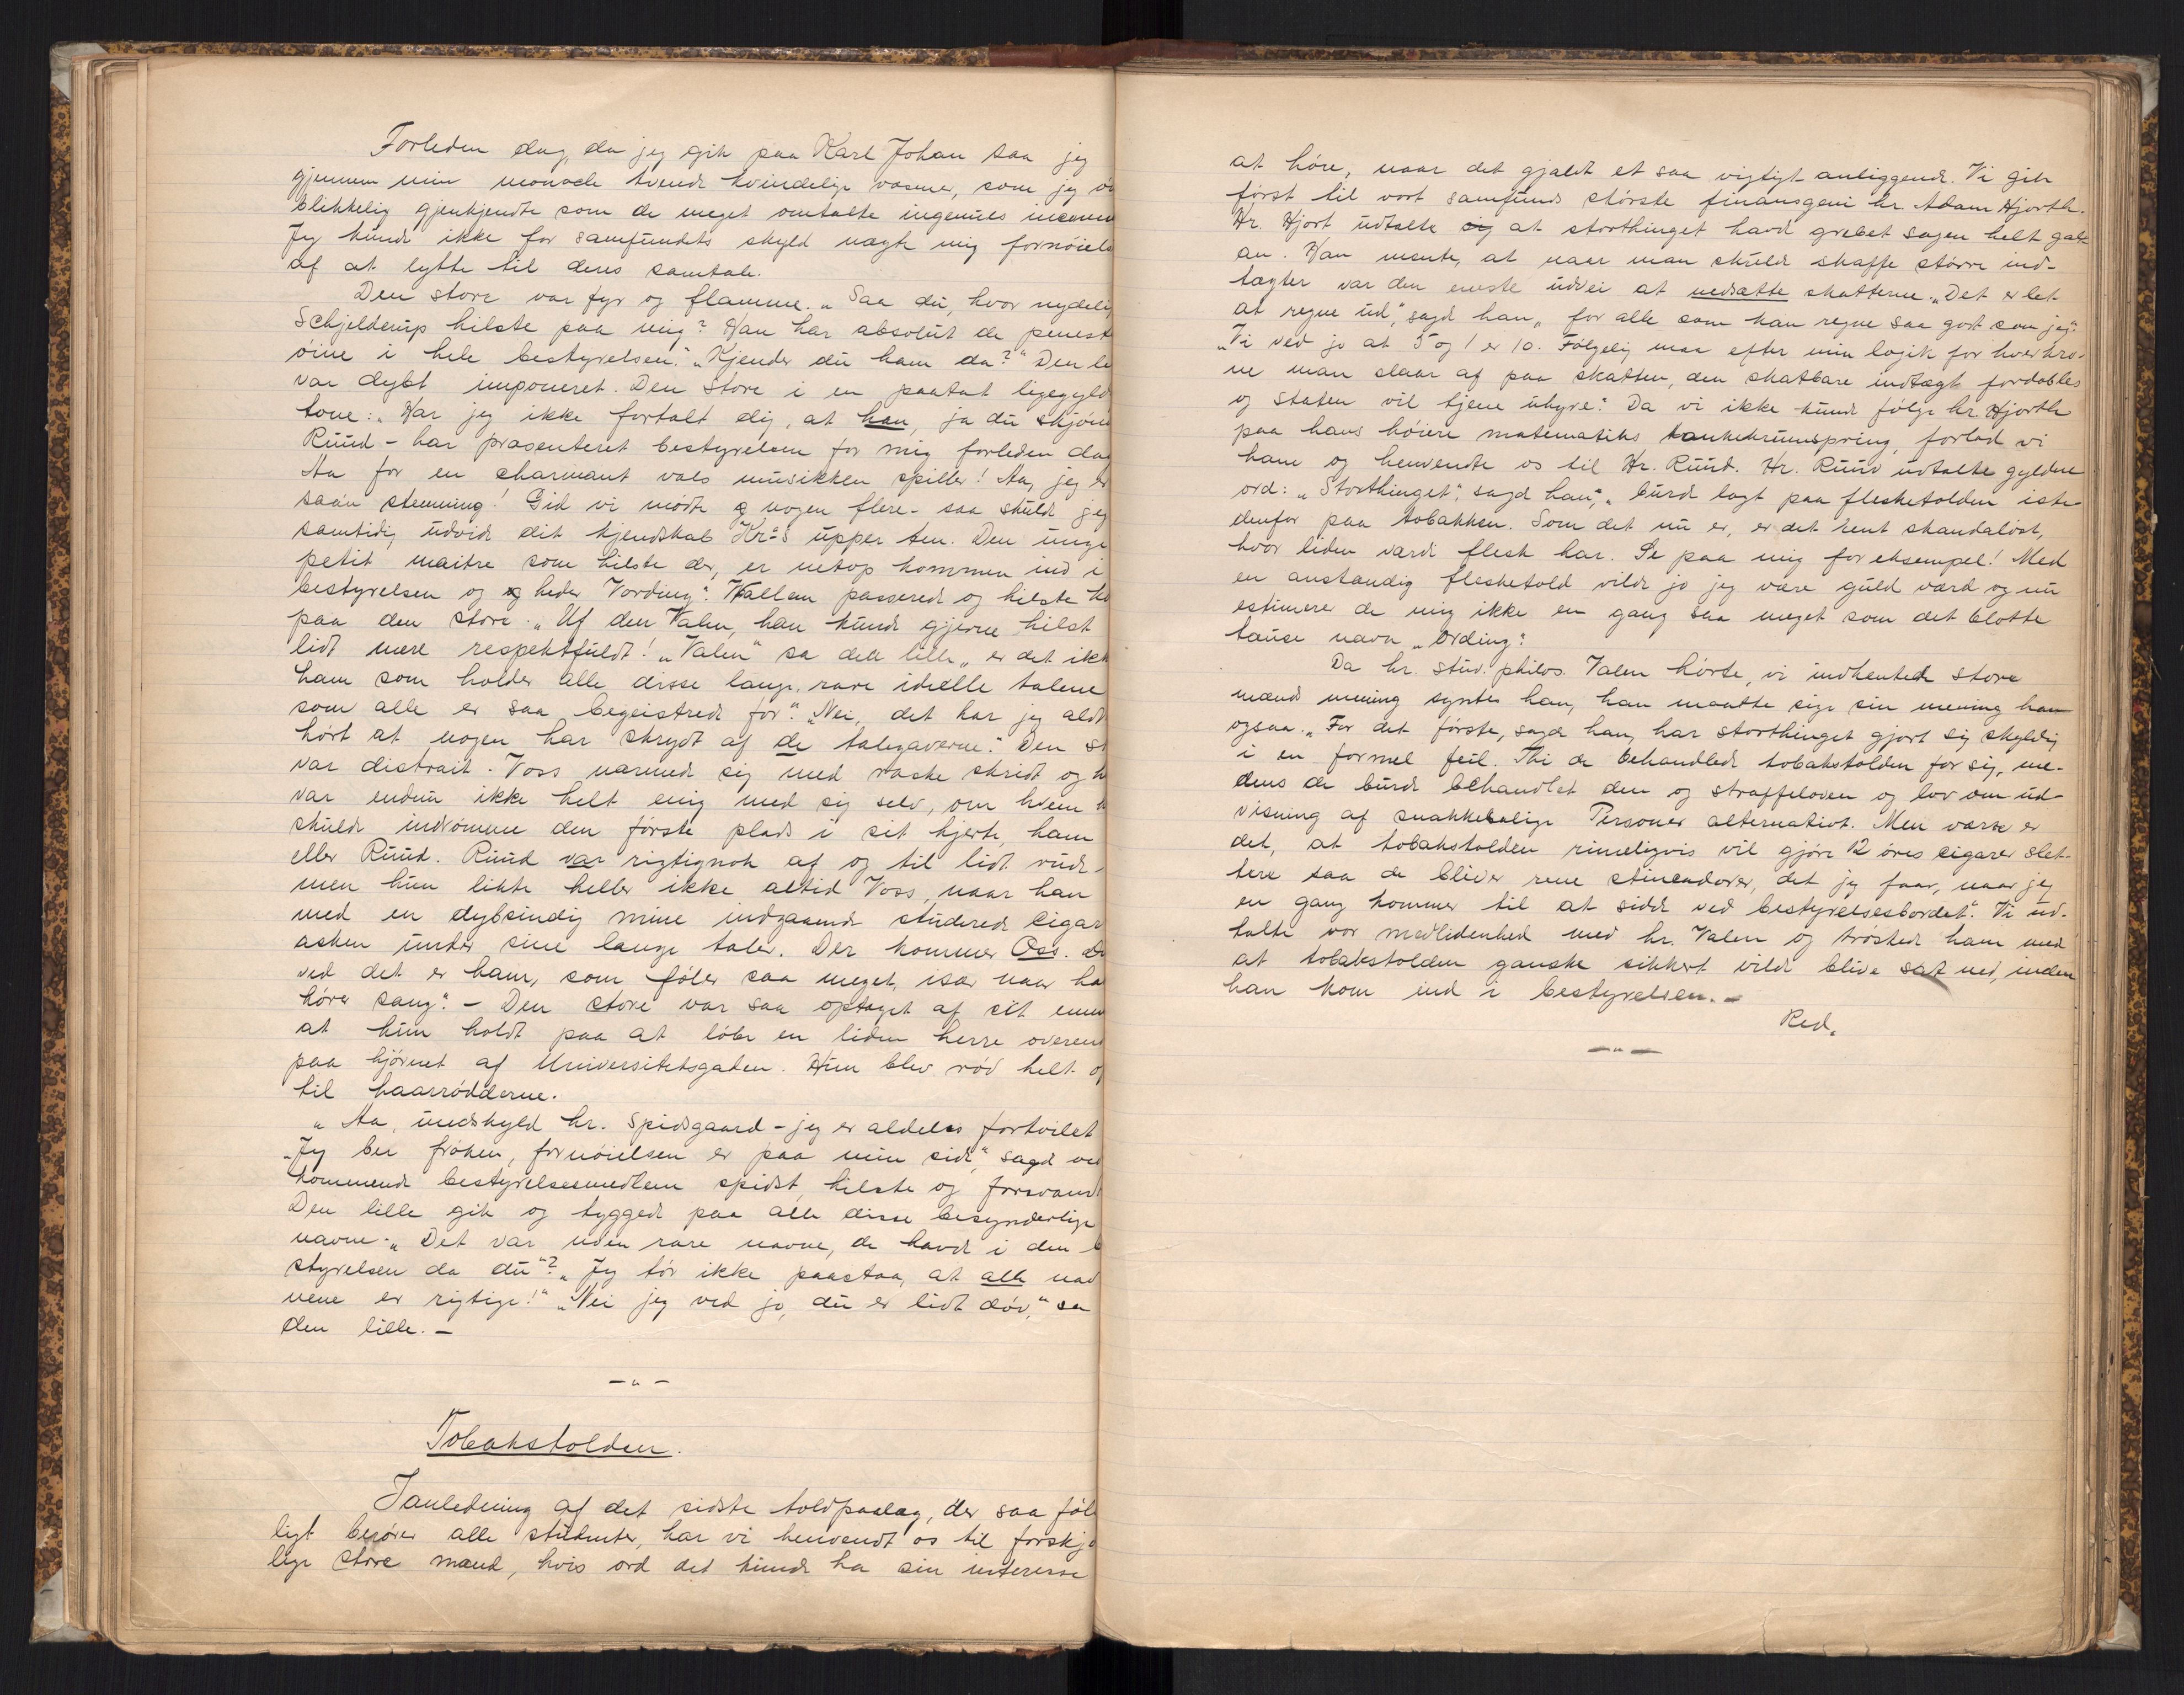 Forleden dag, da jeg gik paa Karl Johan saa jeg
gjennem min monocle tvende kvindelige væsener, som jeg øi
blikkelig gjenkjendte som de meget omtalte ingenues
Jeg kunde ikke for samfundets skyld nægte mig fornøiels
af at lytte til deres samtale.
Den store var fyr og flamme. „Saa du, hvor nydelig
Schjelderup hilste paa mig? Han har absolut de peneste
øine i hele bestyrelsen." „Kjender du ham da?" Den li
var dybt imponeret. Den store i en paatat ligegyld
tone: „Har jeg ikke fortalt dig, at han, ja du skjøn
Ruud - har præsenteret bestyrelsen for mig forleden dag
Aa for en charmant vals musikken spiller! Aa, jeg er
saan stemning! Gid vi mødte nogen flere - saa skulde jeg
samtidig udvide dit kjendskab Kr-a's upper ten. Den unge
petit maitre som hilste der, er netop kommen ind i
bestyrelsen og heder Vording." Wallem passerede og hilste
paa den store. „Uf den Valen, han kunde gjerne hilst
lidt mere respektfuldt! „Valen" sa den lille „er det ikk
ham som holder alle disse lange, rare idielle talene
som alle er saa begeistrede for." „Nei, det har jeg aldr
hørt at nogen har skrydt af de talegaverne." Den st
var distrait. Voss nærmed sig med raske skridt og h
var endnu ikke helt enig med sig selv, om hvem h
skulde indrømme den første plads i sit hjerte, ham
eller Ruud. Ruud var rigtignok af og til lidt rude,
men hun likte heller ikke altid Voss, naar han
med en dybsindig mine indgaaende studerede cigar
asken under sine lange taler. Der kommer Oss. Du
ved det er ham, som føler saa meget, især naar ha
hører sang." - Den store var saa optaget af sit emne
at hun holdt paa at løbe en liden herre overend
paa hjørnet af Universitetsgaden. Hun blev rød helt o
til haarrødderne.
„Aa, undskyld hr. Spidsgaard - jeg er aldeles fortvilet
„Jeg ber frøken, fornøielsen er paa min side," sagde ved
kommende bestyrelsesmedlem spidst, hilste og forsvandt
Den lille gik og tyggede paa alle disse besynderlige
navne. „Det var uden rare navne, de havde i den b
styrelsen da du"? „Jeg tør ikke paastaa, at alle nav
nene er rigtige!" „Nei jeg ved jo, du er lidt døv," sa
den lille. -
- „ -
Tobakstolden.
I anledning af det sidste toldpaalæg, der saa føl
ligt berører alle studenter, har vi henvendt os til forskje
lige store mænd, hvis ord det kunde ha sin interesse
at høre, naar det gjaldt et saa vigtigt anliggende. Vi gik
først til vort samfunds største finansgeni hr. Adam Hjorth.
Hr. Hjort udtalte at storthinget havde grebet sagen helt galt
an. Han mente, at naar man skulde skaffe større ind-
tægter var den eneste udvei at nedsætte skatterne. „Det er let
at regne ud," sagde han, „for alle som kan regne saa godt som jeg."
„Vi ved jo at 5 og 1 er 10. Følgelig maa efter min logik for hver kro-
ne man slaar af paa skatten, den skatbare indtægt fordobles
og staten vil tjene uhyre." Da vi ikke kunde følge hr. Hjorth
paa hans høiere matematiks tankekrumspring, forlod vi
ham og henvendte os til Hr. Ruud. Hr. Ruud udtalte gyldne
ord: „Storthinget", sagde han, „burde lagt paa flesketolden iste-
denfor paa tobakken. Som det nu er, er det rent skandaløst,
hvor liden værdi flesk har. Se paa mig for eksempel! Med
en anstændig flesketold vilde jo jeg være guld værd og nu
estimerer de mig ikke en gang saa meget som det blotte
tause navn „Ording."
Da hr. stud. philos. Valen hørte, vi indhentede store
mænds mening syntes han, han maatte sige sin mening han
ogsaa. „For det første, sagde han, har storthinget gjort sig skyldig
i en formel feil. Thi de behandlede tobakstolden for sig, me-
dens de burde behandlet den og straffeloven og lov om ud-
visning af snakkesalige Personer alternativt. Men værre er
det, at tobakstolden rimeligvis vil gjøre 12 øres cigarer slet-
tere saa de bliver rene stincadorer, det jeg faar, naar jeg
en gang kommer til at sidde ved bestyrelsesbordet." Vi ud-
talte vor medlidenhed med hr. Valen og trøstede ham med
at tobakstolden ganske sikkert vilde blive sat ned, inden
han kom ind i bestyrelsen. -
Red.
- „ -